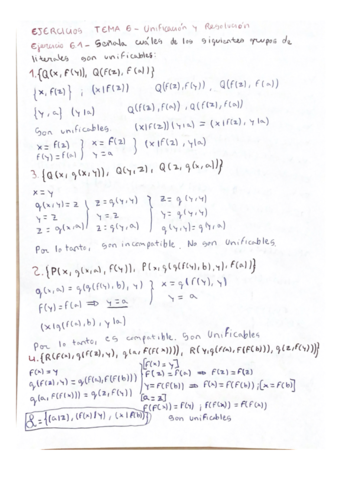 EJERCICIOS TEMA 6 - Unificación y Resolución
Ejercicio 6.1 - Señala cuáles de los siguientes grupos de
literales son unificables:
1. {Q(x, f(y)), Q(f(z), f(a))}
{x, f(z)} ; (x|f(z)) Q(f(z), f(y)), Q(f(z), f(a))
{y, a} (y|a) Q(f(z), f(a)), Q(f(z), f(a))
Son unificables (x|f(z))(y|a) = (x|f(z), y|a)
x = f(z) } x = f(z) } (x|f(z), y|a)
f(y) = f(a) } y = a
3. {Q(x, g(x,y)), Q(y, z), Q(z, g(x,a))}
x = y
g(x,y) = z } z = g(y,y) } z = g(y,y)
y = z } y = z } y = g(y,y)
z = g(x,a) } z = g(y,a) } g(y,y) = g(y,a)
Por lo tanto, son incompatible. No son unificables.
2. {P(x, g(x,a), f(y)), P(x, g(g(f(y), b), y), f(a))}
g(x,a) = g(g(f(y), b), y) } x = g(f(y), y)
f(y) = f(a) ⟹ y = a } y = a
(x|g(f(a), b), y|a)
Por lo tanto, es compatible. Son Unificables
4. {R(f(a), g(f(z), y), g(a, f(f(x)))), R(y, g(f(a), f(f(b))), g(z, f(y)))}
f(a) = y [f(a) = y]
g(f(z), y) = g(f(a), f(f(b))) f(z) = f(a) ⟹ f(z) = f(z)
g(a, f(f(x))) = g(z, f(y)) y = f(f(b)) ⟹ f(a) = f(f(b)) ; [x = f(b)]
[a = z]
f(f(x)) = f(y) ; f(f(x)) = f(f(a))
{(a|z), (f(a)|y), (x|f(b))} son unificables